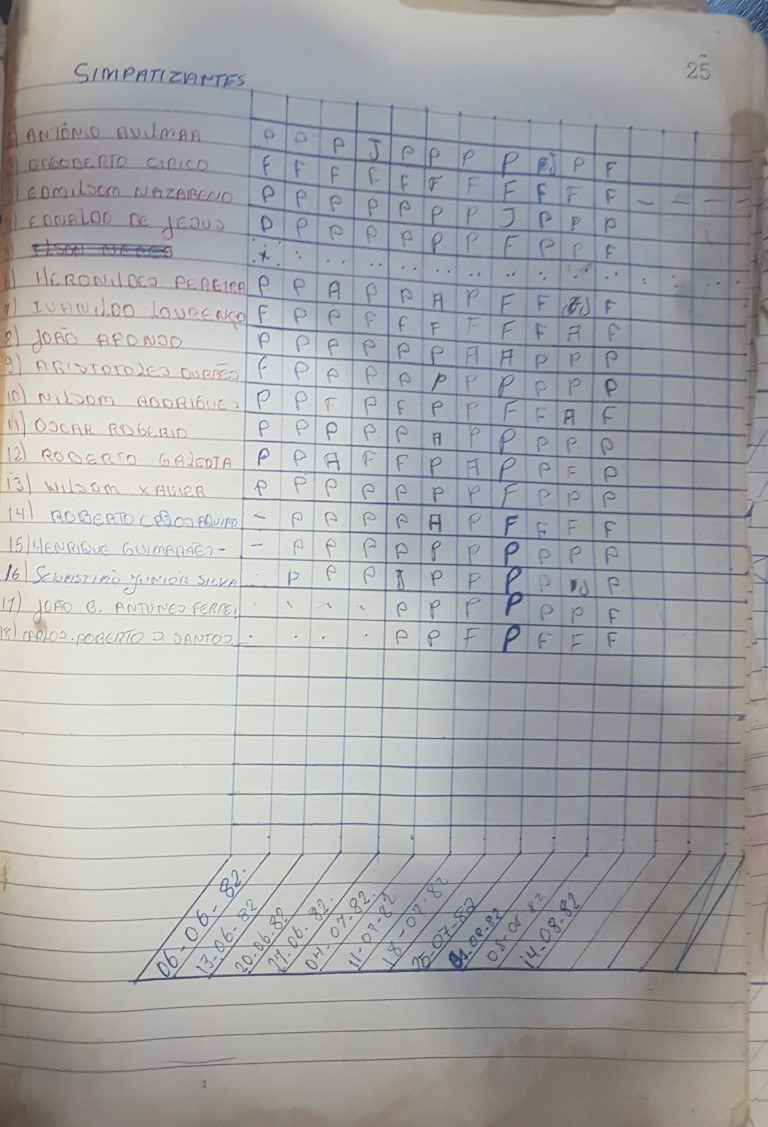 SIMPATIZANTES 25
ANTÔNIO AVILMAR P P P J P P P P P F
F F F F F F F F F F F - - - -
EDMILSOM NAZARENO P P P P P P P J P P P
EDNALDO DE JESUS P P P P P P P F P P F
6) HERONILDES PEREIRA P P A P P A P F F F
7) IVANILDO LOURENÇO F P P F F F F F F A F
8) JOÃO AFONSO P P P P P P A A P P P
9) ARISTOTOLES DURÃES F P P P P P P P P P P
10) NILSOM RODRIGUES P P F P F P P F F A F
11) OSCAR ROGERIO P P P P P A P P P P P
12) ROBERTO GALEOTA P P A F F P A P P F P
13) WILSOM XAVIER P P P P P P P F P P P
14) ROBERTO P P P P A P F F F F
15) HENRIQUE GUIMARÃES - - P P P P P P P P P P
16) JUNIOR SILVA . P P P J P P P P P
17) JOÃO B. ANTUNES . . . . P P P P P P F
18) CARLOS ROBERTO D SANTOS . . . . P P F P F F F
06-06-82.
13-06-82
20-06-82
27-06-82.
04-07-82.
11-07-82
18-07-82
25-07-82
01-08-82
08-08-82
14-08-82